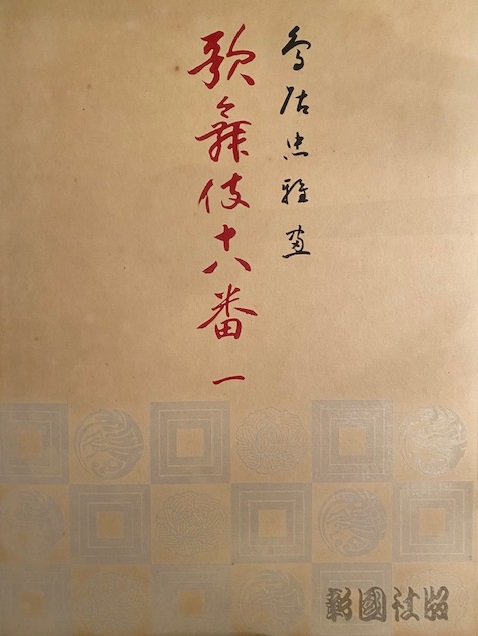 鳥居忠雅画
歌舞伎十八番 一
彰國社版